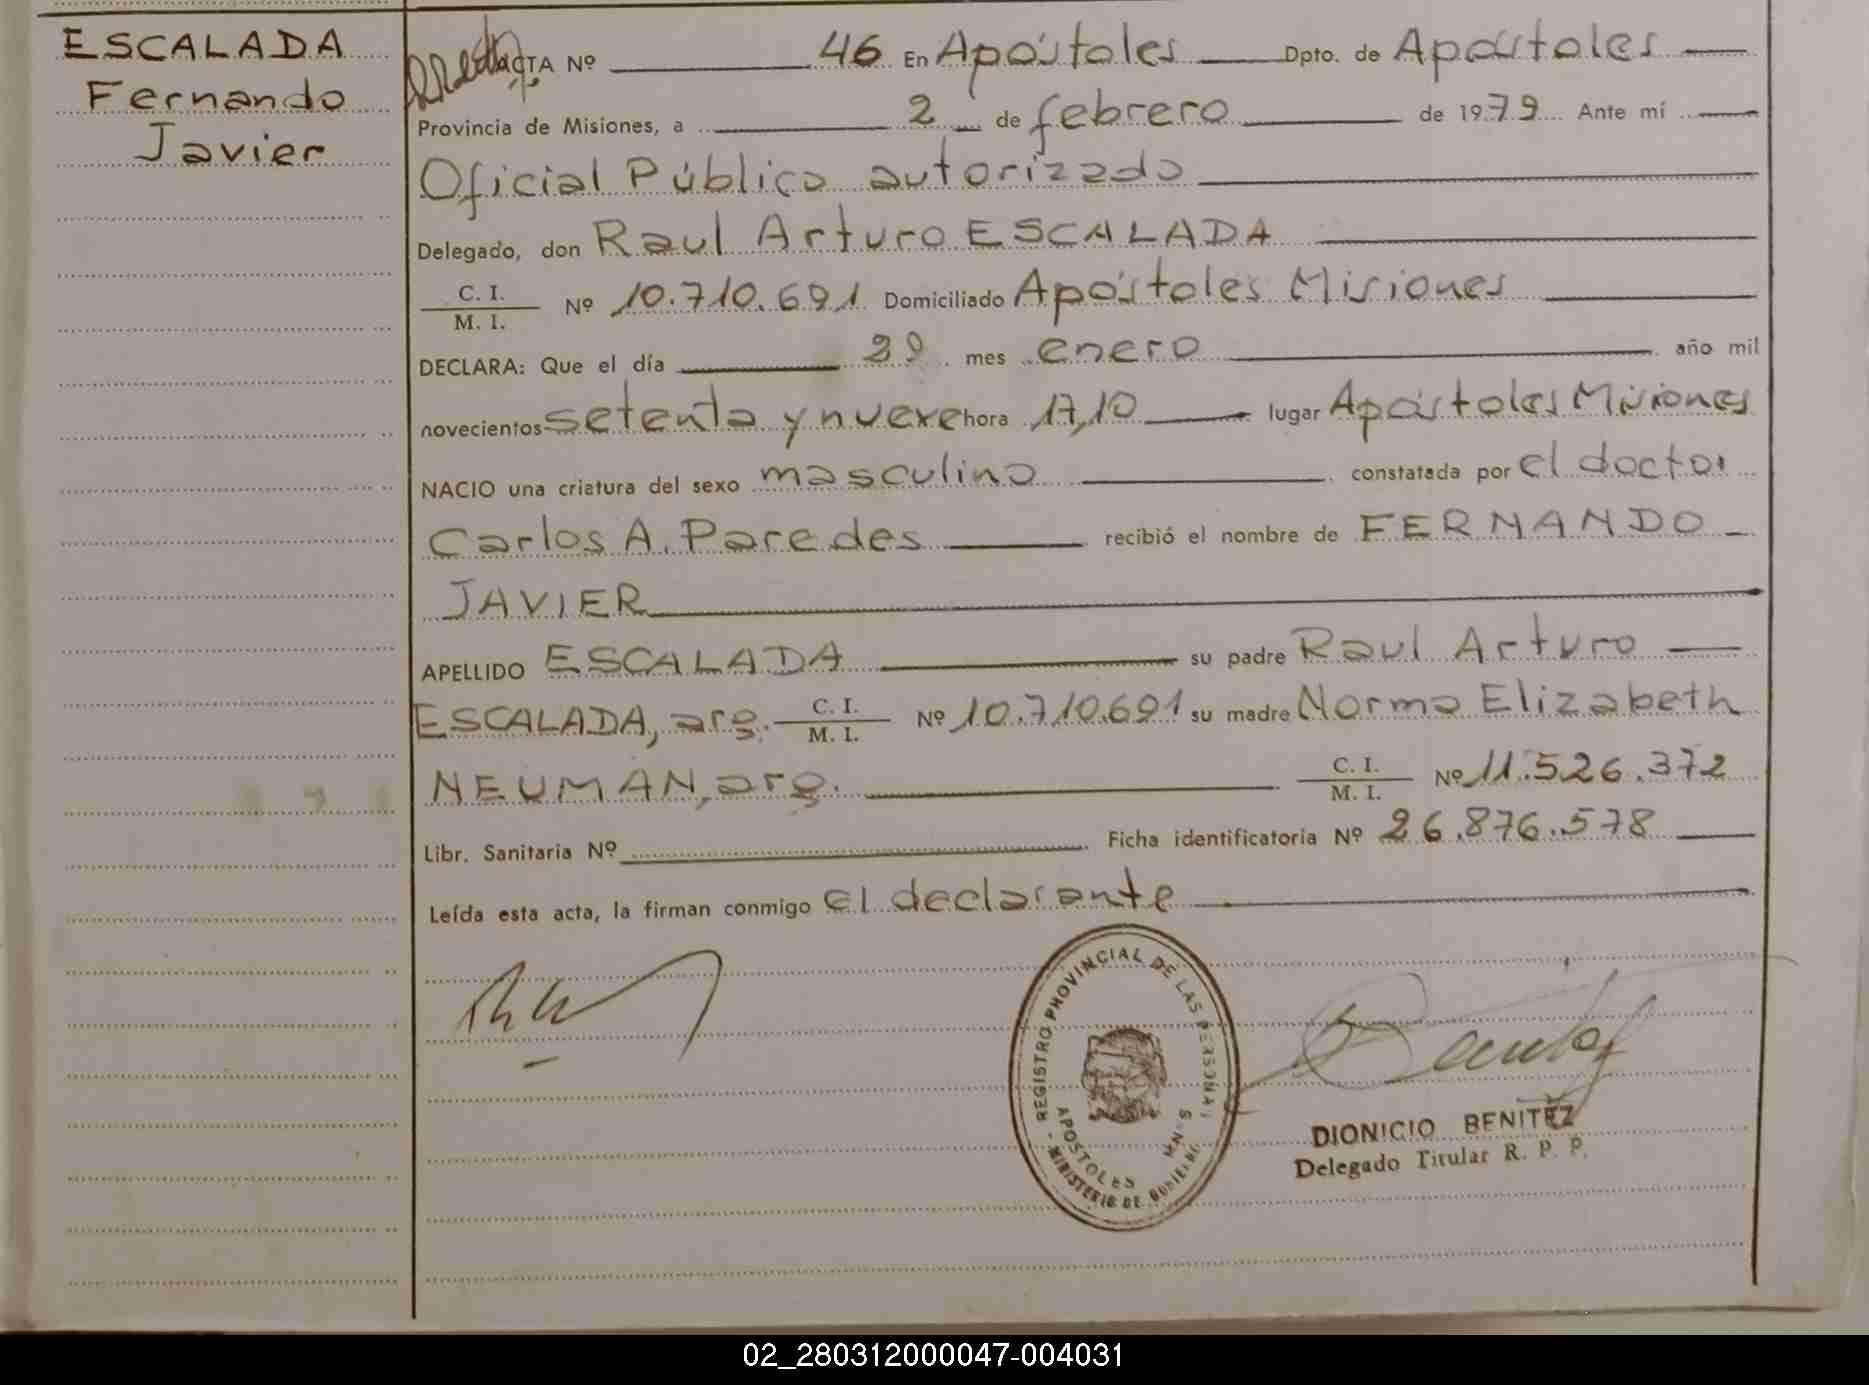 ESCALADA
Fernando
Javier
ACTA Nº 46 En Apóstoles Dpto. de Apóstoles
Provincia de Misiones, a 2 de febrero de 1979 Ante mí
Oficial Público autorizado
Delegado, don Raul Arturo ESCALADA
C. I.
M. I. Nº 10.710.691 Domiciliado Apóstoles Misiones
DECLARA: Que el día 29 mes enero año mil
novecientos setenta y nueve hora 17,10 lugar Apóstoles Misiones
NACIO una criatura del sexo masculino constatada por el doctor
Carlos A. Paredes recibió el nombre de FERNANDO
JAVIER
APELLIDO ESCALADA su padre Raul Arturo
ESCALADA, arg. C. I. M. I. Nº 10.710.691 su madre Norma Elizabeth
NEUMAN, arg. C. I. M. I. Nº 11.526.372
Libr. Sanitaria Nº Ficha identificatoria Nº 26.876.578
Leída esta acta, la firman conmigo el declarante
REGISTRO PROVINCIAL DE LAS PERSONAS
APOSTOLES MNES
MINISTERIO DE GOBIERNO
DIONICIO BENITEZ
Delegado Titular R. P. P.
02_280312000047-004031